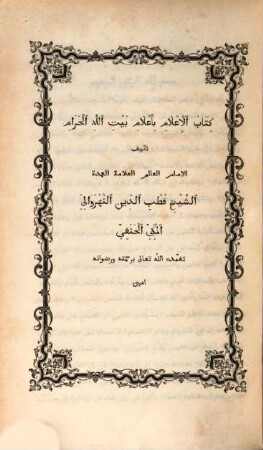 كتاب الإعلام بأعلام بيت الله الحرام
تأليف
الامام العالم العلامة العمدة
الشيخ قطب الدين النهروالي
المكي الحنفي
تغمده الله تعالى برحمته ورضوانه
امين